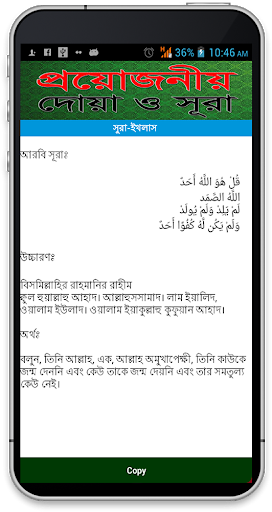 36% 10:46 AM
প্রয়োজনীয়
দোয়া ও সূরা
সুরা-ইখলাস
আরবি সূরাঃ
قُلْ هُوَ اللَّهُ أَحَدٌ
اللَّهُ الصَّمَد
لَمْ يَلِدْ وَلَمْ يُولَدْ
وَلَمْ يَكُن لَّهُ كُفُوًا أَحَدٌ
উচ্চারণঃ
বিসমিল্লাহির রাহমানির রাহীম
কুল হুয়াল্লাহু আহাদ। আল্লাহুসসামাদ। লাম ইয়ালিদ,
ওয়ালাম ইউলাদ। ওয়ালাম ইয়াকুল্লাহু কুফুয়ান আহাদ।
অর্থঃ
বলুন, তিনি আল্লাহ, এক, আল্লাহ অমুখাপেক্ষী, তিনি কাউকে
জন্ম দেননি এবং কেউ তাকে জন্ম দেয়নি এবং তার সমতুল্য
কেউ নেই।
Copy